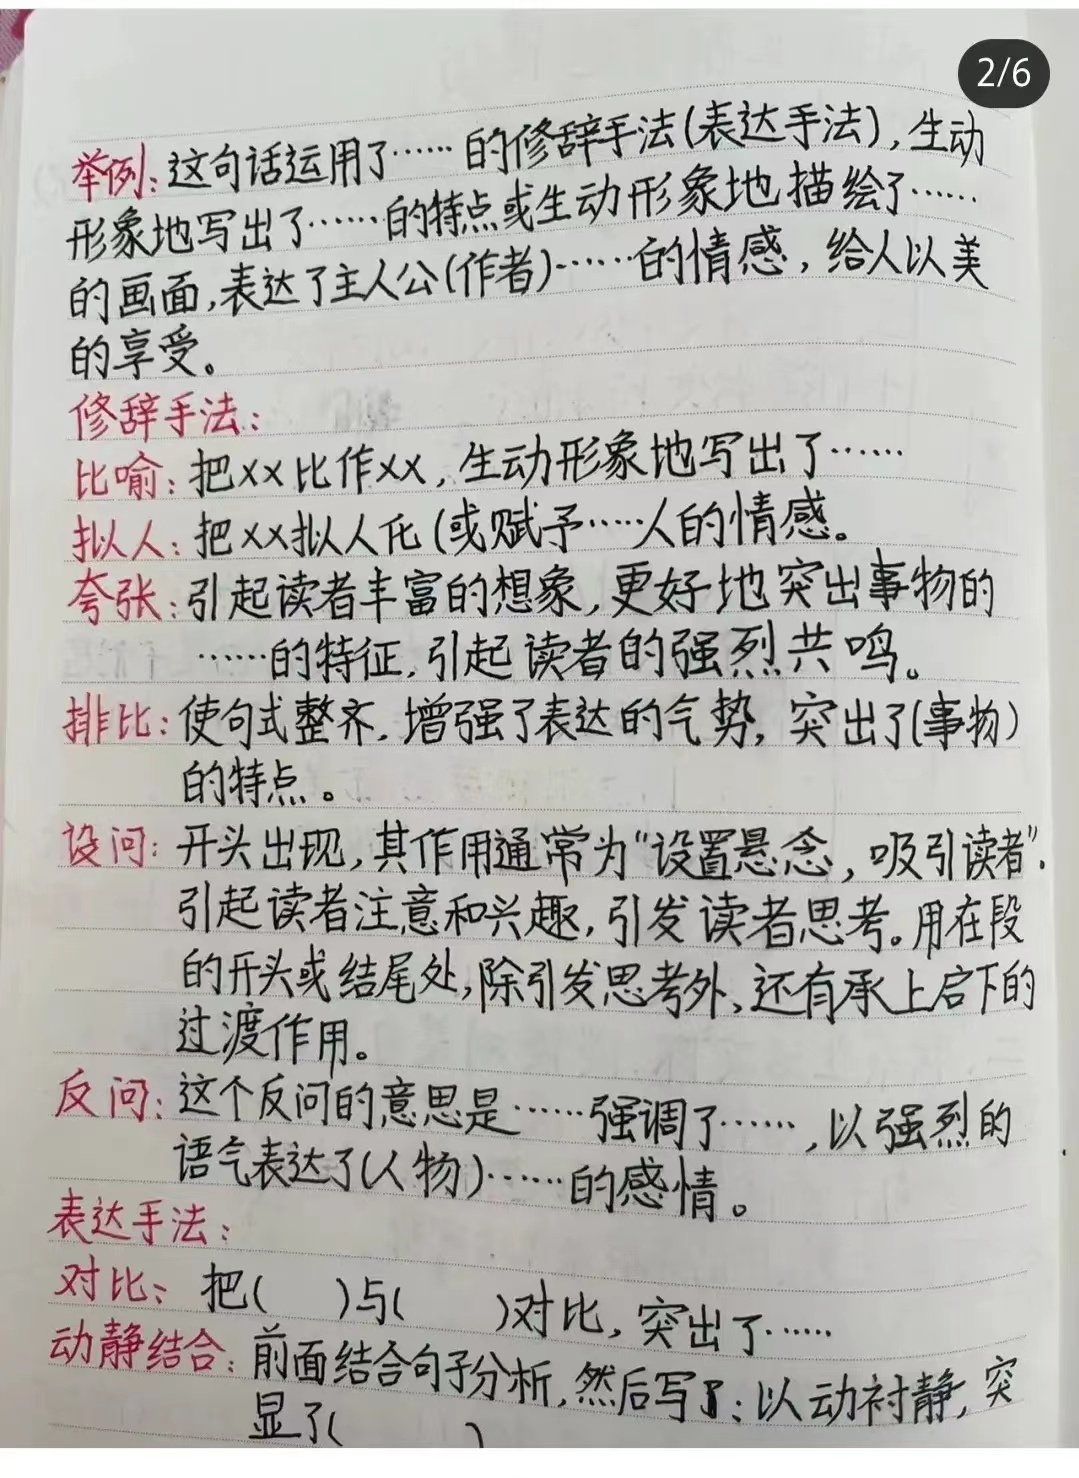 2/6
举例:这句话运用了……的修辞手法(表达手法),生动
形象地写出了……的特点或生动形象地描绘了……
的画面,表达了主人公(作者)……的情感,给人以美
的享受。
修辞手法:
比喻:把××比作××,生动形象地写出了……
拟人:把××拟人化(或赋予……人的情感。
夸张:引起读者丰富的想象,更好地突出事物的
……的特征,引起读者的强烈共鸣。
排比:使句式整齐,增强了表达的气势,突出了(事物)
的特点。
设问:开头出现,其作用通常为“设置悬念,吸引读者”.
引起读者注意和兴趣,引发读者思考。用在段
的开头或结尾处,除引发思考外,还有承上启下的
过渡作用。
反问:这个反问的意思是……强调了……,以强烈的
语气表达了(人物)……的感情。
表达手法:
对比:把(  )与(  )对比,突出了……
动静结合:前面结合句子分析,然后写了:以动衬静,突
显了(  )